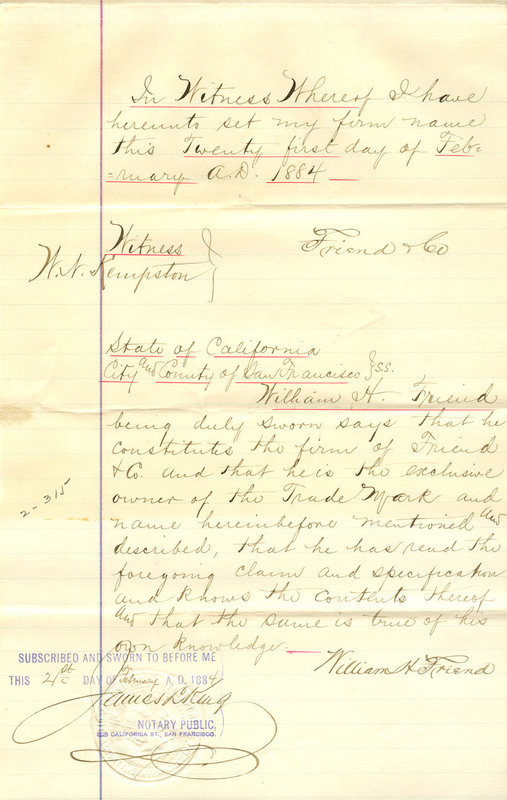 In Witness Whereof I have
hereunto set my firm name
this Twenty first day of Feb=
=ruary A.D. 1884 —
Witness } Friend & Co
W. N. Kempston
State of California
City and County of San Francisco } ss.
William H. Friend
being duly sworn says that he
constitutes the firm of Friend
& Co. and that he is the exclusive
owner of the Trade Mark and
name hereinbefore mentioned and
described, that he has read the
foregoing claim and specification
and knows the contents thereof
and that the same is true of his
own knowledge —
William H Friend
2-315
SUBSCRIBED AND SWORN TO BEFORE ME
THIS 21st DAY OF February A. D. 1884
James L King
NOTARY PUBLIC,
CALIFORNIA ST., SAN FRANCISCO.